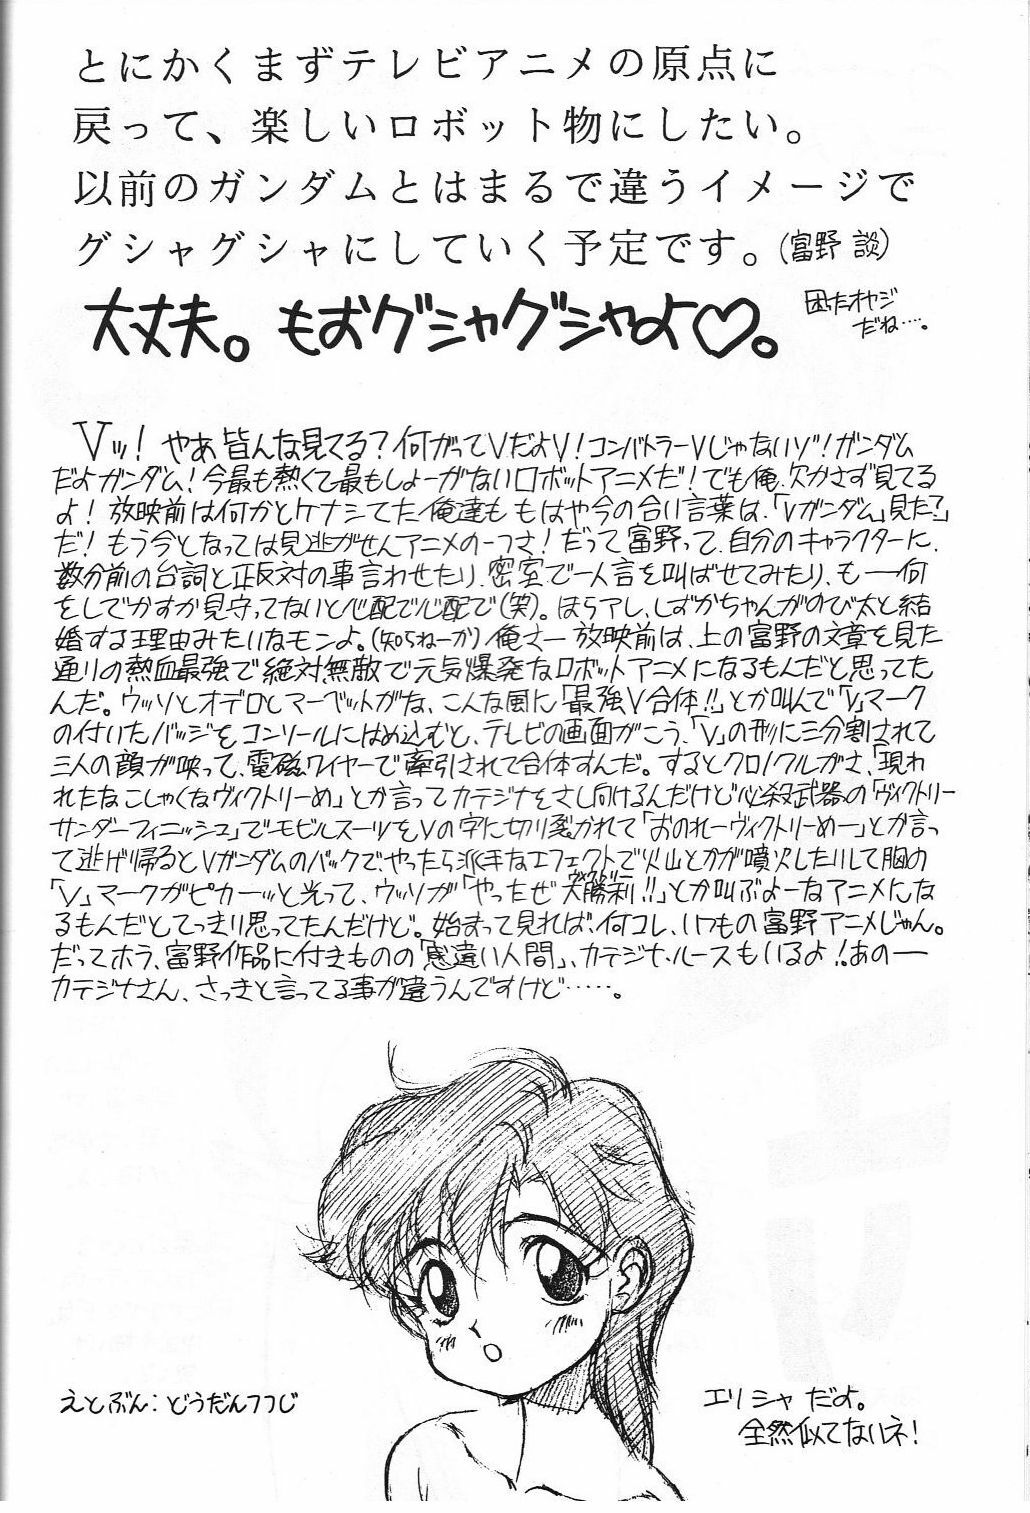 とにかくまずテレビアニメの原点に
戻って、楽しいロボット物にしたい。
以前のガンダムとはまるで違うイメージで
グシャグシャにしていく予定です。(富野 談)
大丈夫。もおグシャグシャよ♡。
困ったオヤジ
だね….。
Vッ！やあ皆んな見てる？何がってVだよV！コンバトラーVじゃないゾ！ガンダム
だよガンダム！今最も熱くて最もしょーがないロボットアニメだ！でも俺、欠かさず見てる
よ！放映前は何かとケナシてた俺達ももはや今の合い言葉は、「Vガンダム」見た？」
だ！もう今となっては見逃がせんアニメの一つさ！だって富野って、自分のキャラクターに、
数分前の台詞と正反対の事言わせたり、密室で一人言を叫ばせてみたり、も――何
をしでかすか見守ってないと心配で心配で(笑)。ほらアレ、しずかちゃんがのび太と結
婚する理由みたいなモンよ。(知らねーか)ノ俺さー放映前は、上の富野の文章を見た
通りの熱血最強で絶対無敵で元気爆発なロボットアニメになるもんだと思ってた
んだ。ウッソとオデロとマーベットがな、こんな風に「最強V合体!!」とか叫んで「V」マーク
の付いたバッジをコンソールにはめ込むと、テレビの画面がこう、「V」の形に三分割されて
三人の顔が映って、電磁ワイヤーで牽引されて合体すんだ。するとクロノクルがさ、「現わ
れたなこしゃくなヴィクトリーめ」とか言ってカテジナをさし向けるんだけど必殺武器の「ヴィクトリー
サンダーフィニッシュ」でモビルスーツをVの字に切り裂かれて「おのれーヴィクトリーめー」とか言っ
て逃げ帰るとVガンダムのバックで、やったら派手なエフェクトで火山とかが噴火したりして胸の
「V」マークがピカーッと光って、ウッソが「やったぜ大勝利!!」とか叫ぶよーなアニメにな
るもんだとてっきり思ってたんだけど。始まって見れば、何コレ、いつもの富野アニメじゃん。
だってホラ、富野作品に付きものの「感違い人間」、カテジナ・ルースもいるよ！あの――
カテジナさん、さっきと言ってる事が違うんですけど……。
えとぶん：どうだんつつじ
エリシャ だよ。
全然似てないネ！